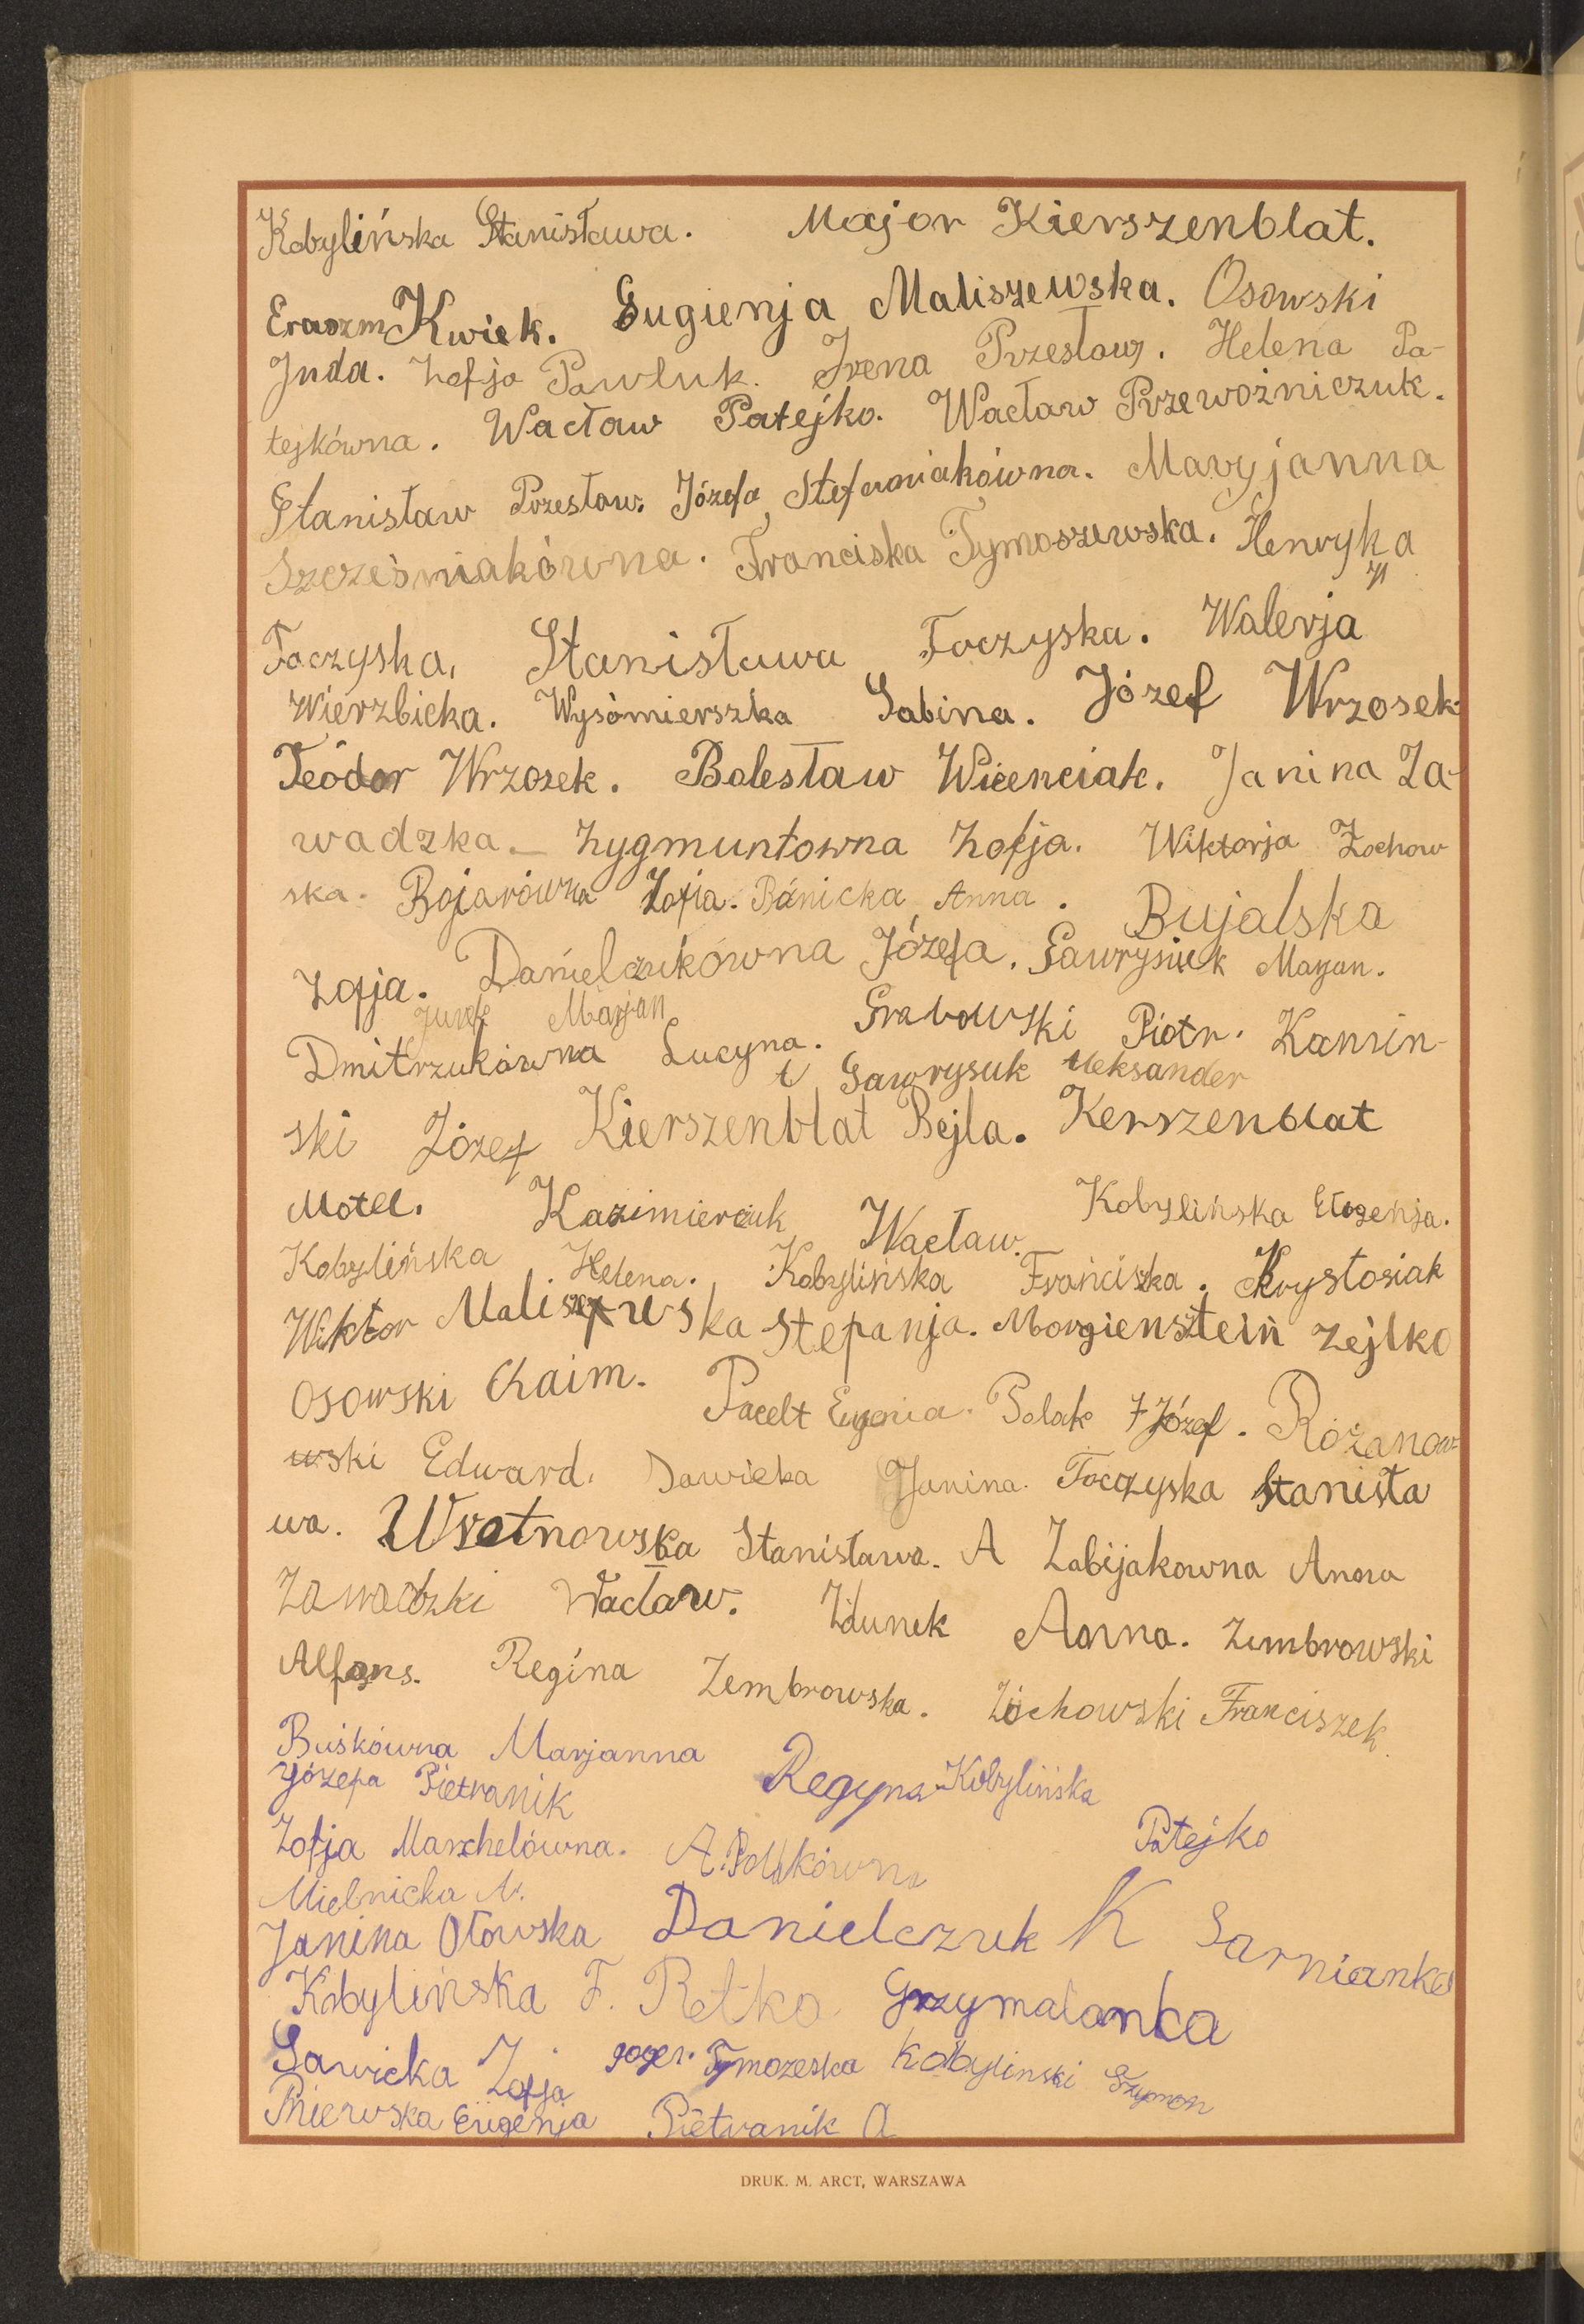 Kobylińska Stanisława. Major Kierszenblat.
Erazm Kwiek. Eugienja Maliszewska. Osowski
Juda. Zofja Pawluk. Irena Przesław. Helena Pa-
tejkówna. Wacław Patejko. Wacław Przewoźniczuk.
Stanisław Przesław. Józefa Stefaniakówna. Maryjanna
Szcześniakówna. Franciska Tymoszewska. Henryka
Toczyska. Stanisława Toczyska. Walerja
Wierzbicka. Wysómierszka Sabina. Józef Wrzosek.
Teódor Wrzosek. Bolesław Wicenciak. Janina Za-
wadzka. Zygmuntowna Zofja. Wiktorja Żochow
ska. Bojarówna Zofia. Bánicka Anna. Bujalska
Zofja. Danielczukówna Józefa. Gawrysiuk Marjan.
Józef Marjan
Dmitrzukówna Lucyna. Grabowski Piotr. Kamin-
Gawrysuk Aleksander
ski Józef Kierszenblat Bejla. Kerszenblat
Motel. Kazimierczuk Wacław. Kobylińska
Kobylińska Helena. Kobylińska Frańciszka. Krystosiak
Wiktor Maliszewska Stefanja. Morgiensztein Zejlko
Osowski Chaim. Pacelt Eugenia. Polak Józef. Rożanow
wski Edward. Sawicka Janina. Toczyska Stanisła
wa. Wrotnowska Stanisława. A Zabijakowna Anna
Zawadzki Wacław. Zdunek Anna. Zembrowski
Alfons. Regina Zembrowska. Żochowski Franciszek.
Buśkówna Marjanna
Józefa Pietranik Regyna Kobylińska
Zofja Marchelówna. A. Polakówna Patejko
Mielnicka M.
Janina Ołowska Danielczuk K Sarnianka
Kobylińska F. Retko Grzymalanka
Sawicka Zofja Kobylinski Szymon
Eugenja Pietranik A
DRUK. M. ARCT, WARSZAWA